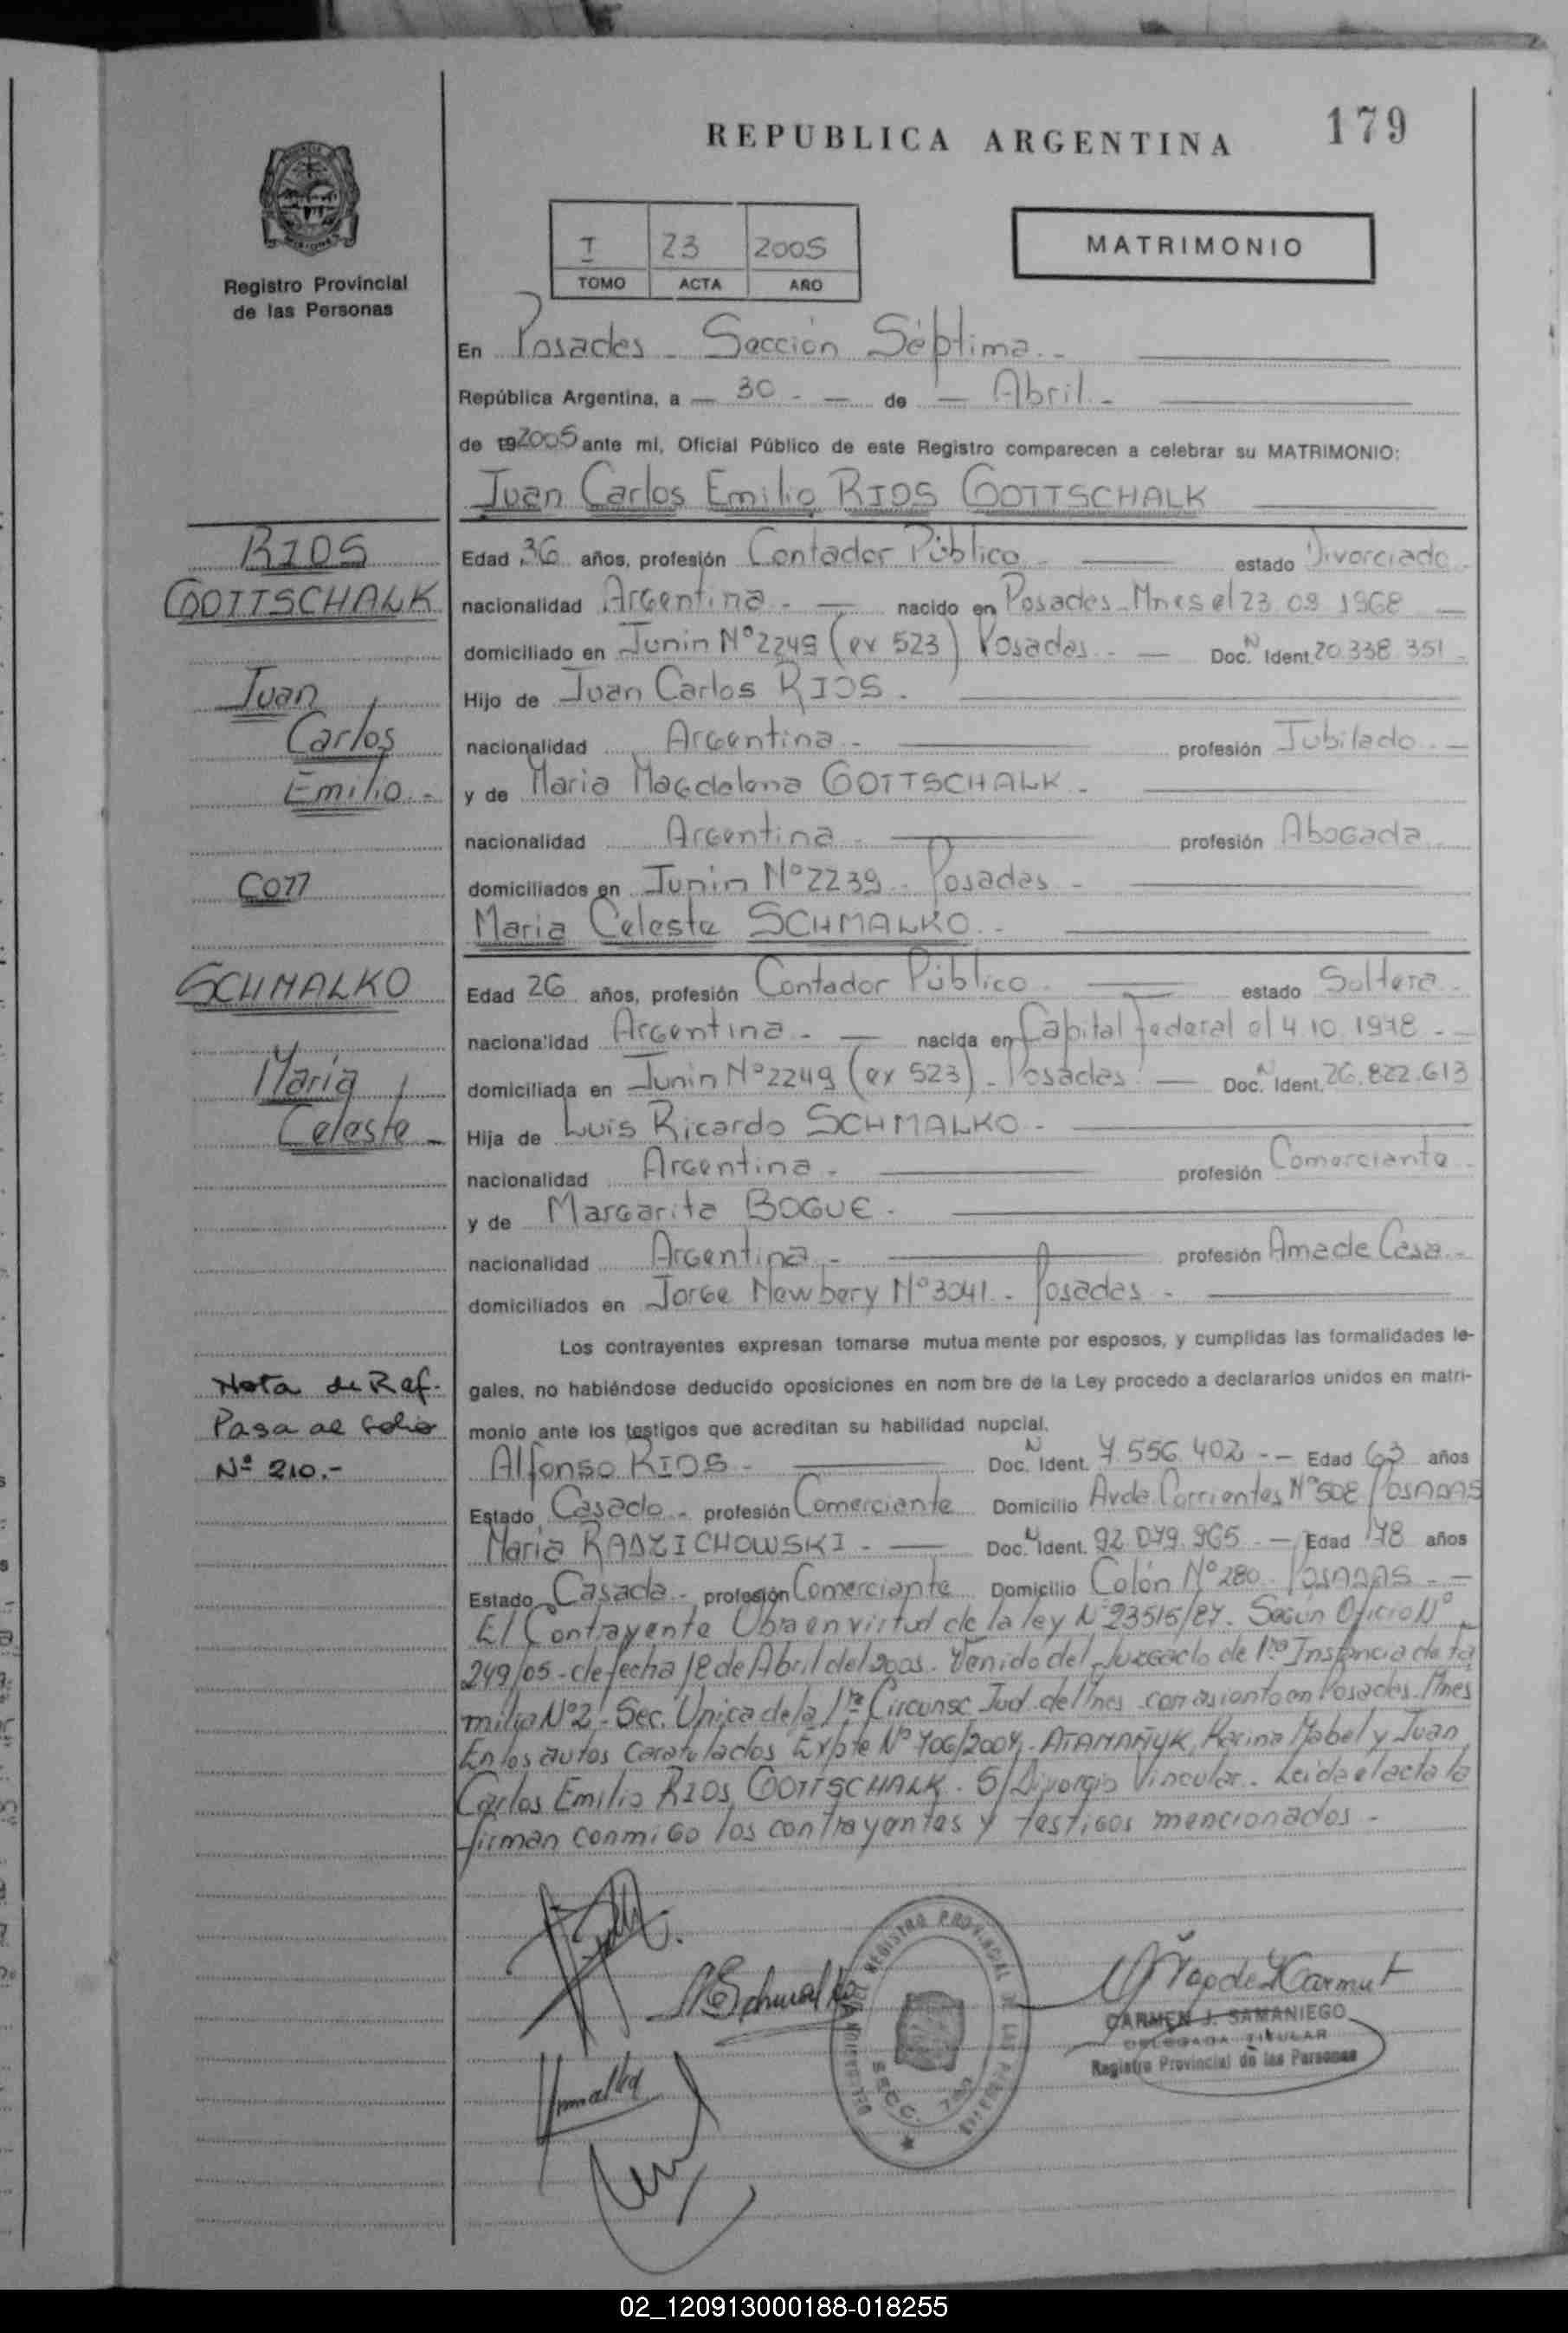 REPUBLICA ARGENTINA
179
Registro Provincial
de las Personas
I 23 2005
TOMO ACTA AÑO
MATRIMONIO
En Posadas - Sección Séptima. -
República Argentina, a — 30 - — de — Abril. -
de 192005 ante mí, Oficial Público de este Registro comparecen a celebrar su MATRIMONIO:
Juan Carlos Emilio RIOS GOTTSCHALK
RIOS
GOTTSCHALK
Juan
Carlos
Emilio. -
CON
SCHMALKO
Maria
Celeste -
Nota de Ref.
Pasa al folio
Nº 210.-
Edad 36 años, profesión Contador Público - estado Divorciado -
nacionalidad Argentina - — nacido en Posadas - Mnes el 23 09 1968 —
domiciliado en Junin Nº 2249 (ex 523) Posadas - — Doc. N Ident. 20.338.351 -
Hijo de Juan Carlos RIOS -
nacionalidad Argentina - profesión Jubilado. -
y de Maria Magdalena GOTTSCHALK -
nacionalidad Argentina - profesión Abogada
domiciliados en Junin Nº 2239 - Posadas -
Maria Celeste SCHMALKO. -
Edad 26 años, profesión Contador Público - estado Soltera -
nacionalidad Argentina - — nacida en Capital Federal el 4.10.1978 - -
domiciliada en Junin Nº 2249 (ex 523) - Posadas - — Doc. N Ident. 26.822.613
Hija de Luis Ricardo SCHMALKO -
nacionalidad Argentina - profesión Comerciante -
y de Margarita BOGUE -
nacionalidad Argentina - profesión Ama de Casa -
domiciliados en Jorge Newbery Nº 3041 - Posadas -
Los contrayentes expresan tomarse mutua mente por esposos, y cumplidas las formalidades le-
gales, no habiéndose deducido oposiciones en nom bre de la Ley procedo a declararlos unidos en matri-
monio ante los testigos que acreditan su habilidad nupcial.
Alfonso RIOS - Doc. N Ident. 7.556.402 - - Edad 63 años
Estado Casado - profesión Comerciante Domicilio Avda Corrientes Nº 508 POSADAS
Maria RADZICHOWSKI - — Doc. N Ident. 92.079.965 - Edad 78 años
Estado Casada - profesión Comerciante Domicilio Colón Nº 280 - POSADAS - -
El Contrayente Obra en virtud de la ley Nº 23515/87. Según Oficio Nº
249/05 - de fecha 18 de Abril del 2005. Venido del Juzgado de 1ra Instancia de fa
milia Nº 2 - Sec. Unica de la 1ra Circunsc. Jud. de Mnes con asiento en Posadas - Mnes
En los autos Caratulados Expte Nº 706/2004. ATAMAÑUK, Karina Mabel y Juan
Carlos Emilio RIOS GOTTSCHALK. S/Divorcio Vincular. Leida el acta la
firman conmigo los contrayentes y testigos mencionados -
REGISTRO PROVINCIAL DE LAS PERSONAS
SECC. 7ma
CARMEN J. SAMANIEGO
DELEGADA TITULAR
Registro Provincial de las Personas
02_120913000188-018255